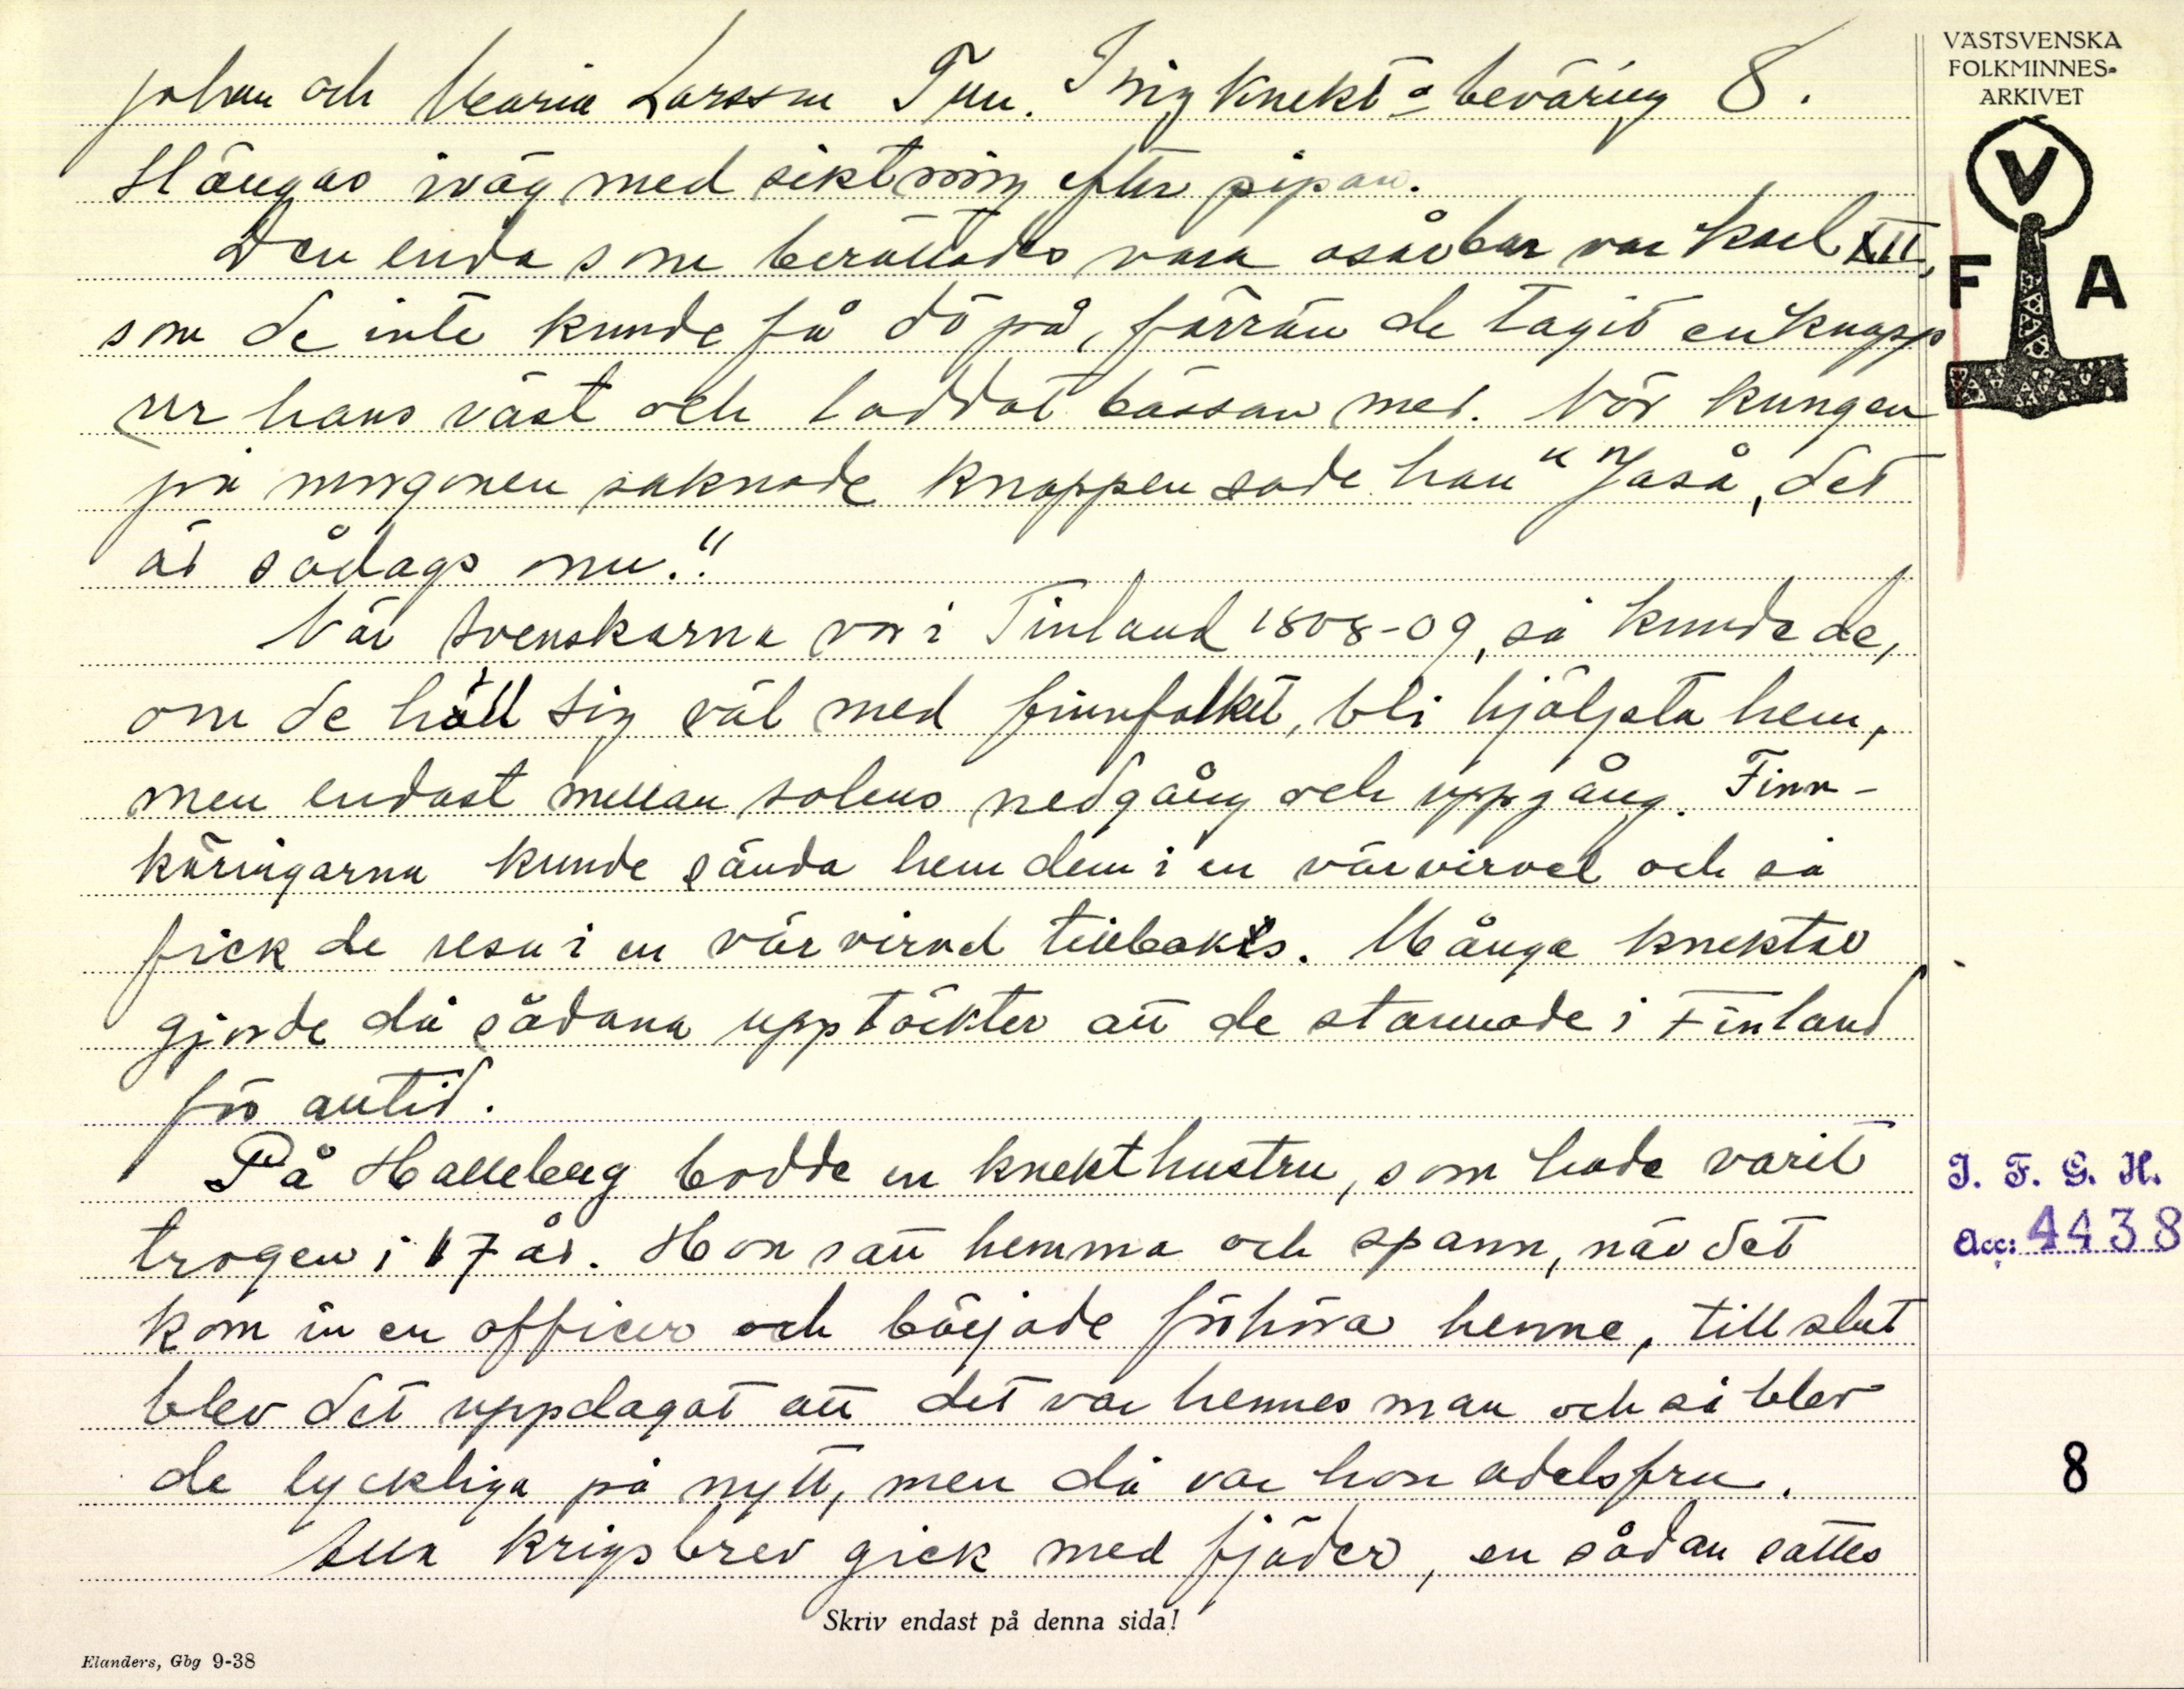 Johan och Maria Larsson Tun. Krig knekt o beväring 8.
slängas iväg med siktning efter pipan.
Den enda som berättades vara osårbar var Karl XII,
som de inte kunde få dö på, förrän de tagit en knapp
ur hans väst och laddat bössan med. När kungen
på morgonen saknade knappen sade han "Jaså, det
är sådags nu."
När svenskarna var i Finland 1808-09, så kunde de,
om de höll sig väl med finnfolket, bli hjälpta hem,
men endast mellan solens nedgång och uppgång. Finn-
käringarna kunde sända hem dem i en värvirvel och så
fick de resa i en värvirvel tillbakes. Många knektar
gjorde då sådana upptäckter att de stannade i Finland
för alltid.
På Halleberg bodde en knekthustru, som hade varit
trogen i 17 år. Hon satt hemma och spann, när det
kom in en officer och började förhöra henne, till slut
blev det uppdagat att det var hennes man och så blev
de lyckliga på nytt, men då var hon adelsfru.
Alla krigsbrev gick med fjäder, en sådan sattes
Skriv endast på denna sida!
Elanders, Gbg 9-38
VÄSTSVENSKA
FOLKMINNES-
ARKIVET
V
F A
I. F. G. H.
Acc: 4438
8